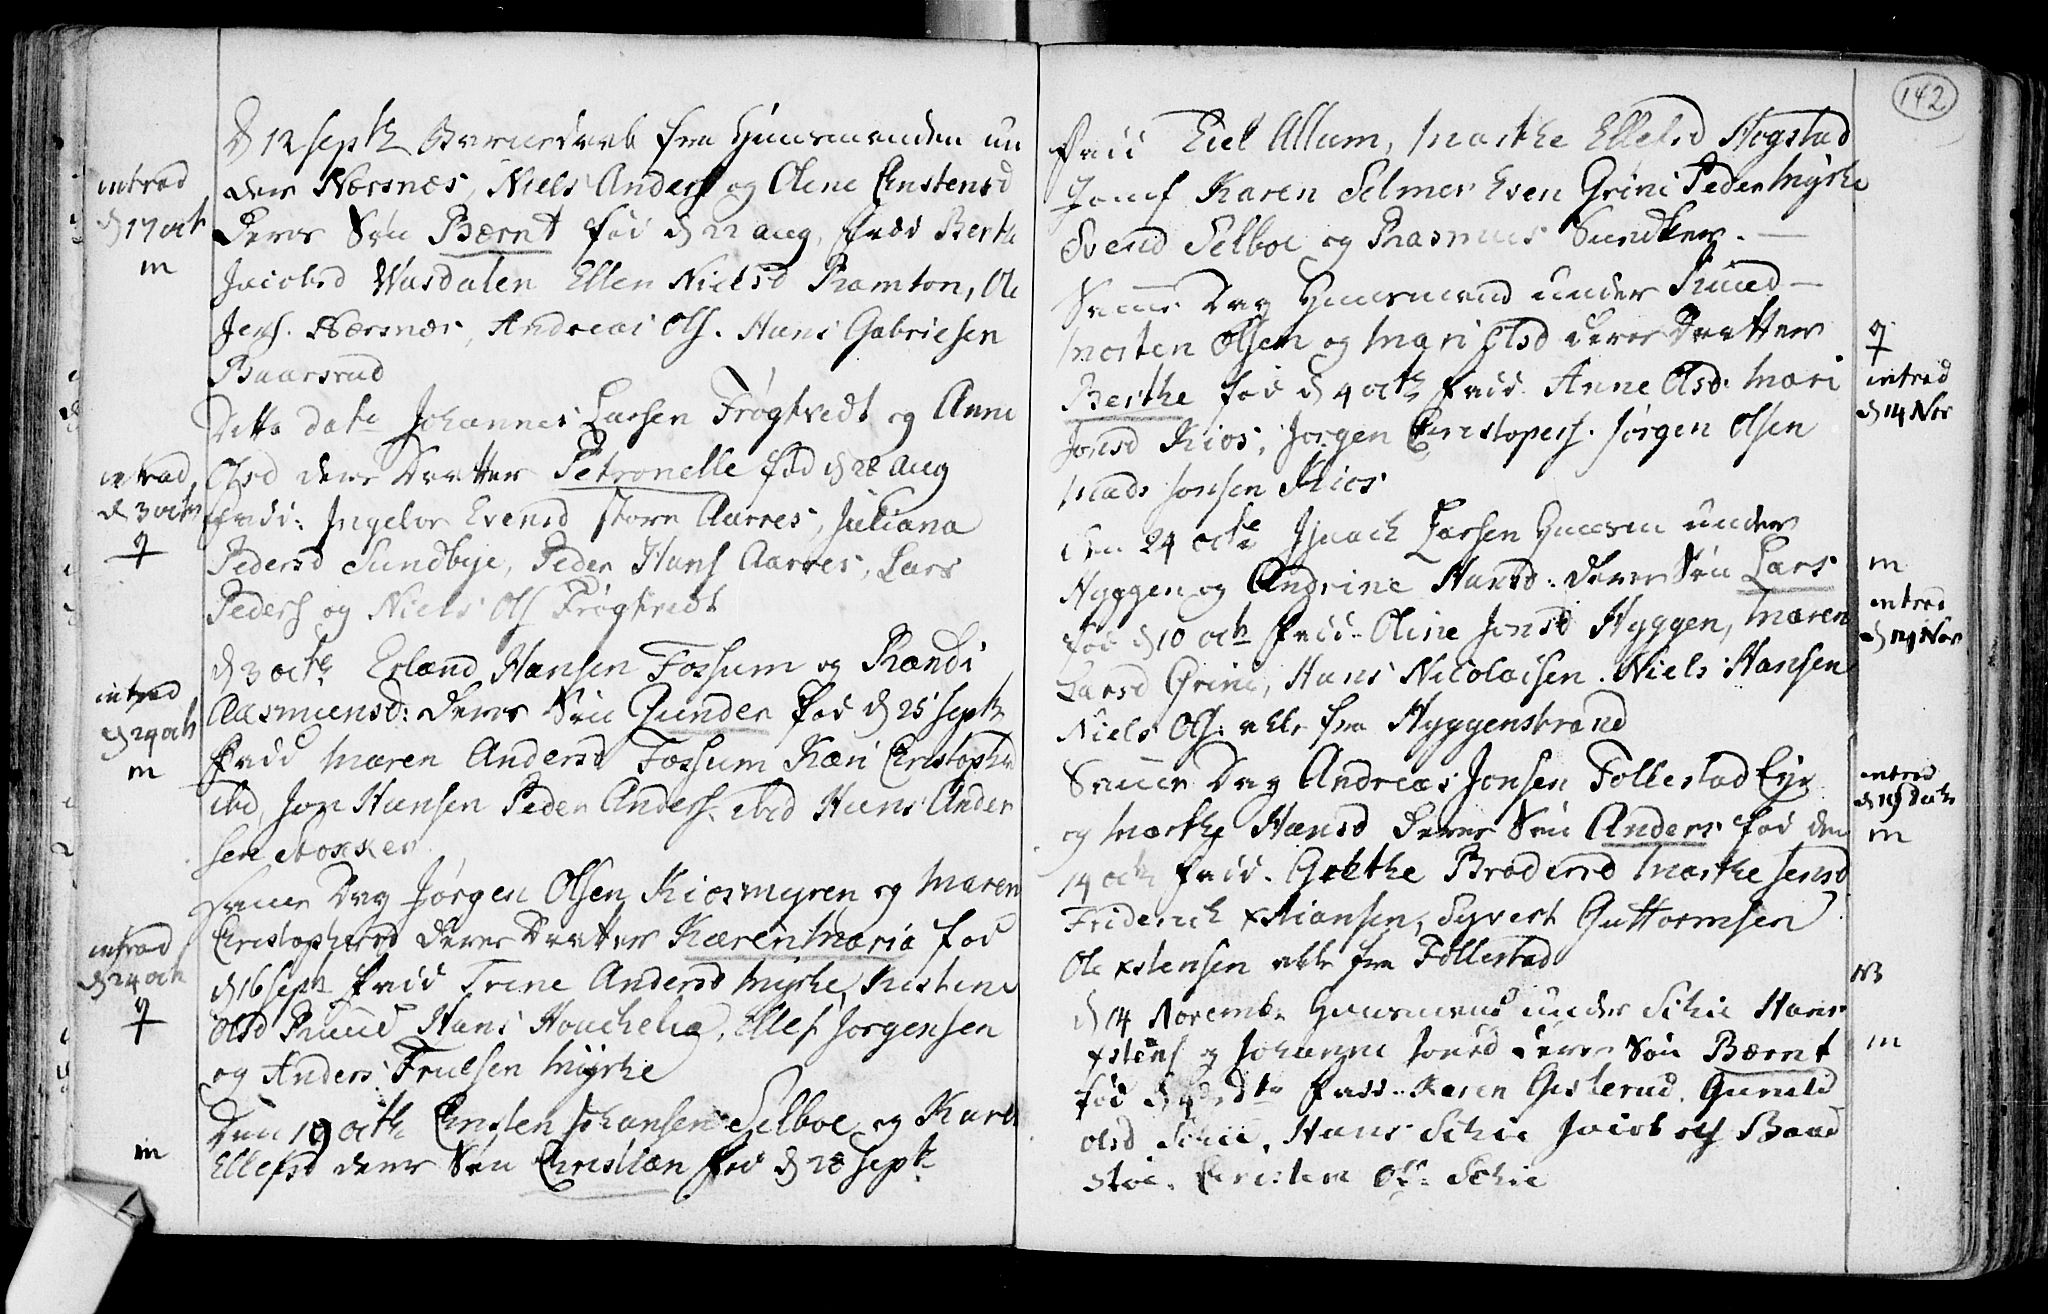 142
D 12 septr Barnedaab fra Huusmanden un
der Nærsnæs, Niels Anders og Olene Christensd
deres Søn Bærnt fød d 22 aug, fadd Berthe
Jacobsd Wasdalen Ellen Nielsd Ramton, Ole
Jens. Nærsnæs, Andreas Ols. Hans Gabrielsen
Baarsrud
Ditto dato Johannes Larsen Frøgtvedt og Anne
Olsd deres Daatter Petronelle fød d 28 aug
fadd: Ingebor Evensd store Aarres, Juliana
Pedersd Sundbye, Peder Hans Aarres, Lars
Peders og Niels Ols Frøgtvedt
d 3 octr Erland Hansen Fossum og Randi
Aasmunsd: deres Søn Gunder fød d 25 septr
fadd Maren Andersd Fossum Kari Christophd
ibd, Jon Hansen Peder Anders. ibd Hans Ander
sen Stokker
Samme Dag Jørgen Olsen Kiosmyren og Maren
Christophersd deres Daatter Karen Maria fød
d 16 septr fadd Trine Andersd Myrhe, Kirstene
Olsd Ruud Hans Houchelie, Ellef Jorgensen
og Anders Truelsen Myrhe
Den 19 octr Christen Johansen Selboe og Karen
Ellefsd deres Søn Christian fød d 28 septr
introd
d 17 oct
m
introd
d 3 octr
♀
introd
d 24 oct
m
introd
d 24 oct
♀
m
fadd Eiel Allum, Marthe Ellefsd Hogstad
Jomf Karen Selmer Even Grini Peder Myrhe
Svend Selboe og Rasmus Sundbye. —
Samme Dag Huusmand under Ruud —
Morten Olsen og Mari Olsd deres Daatter
Berthe fød d 4 octr fadd. Anne Olsd. Mari
Jonsd Kios, Jorgen Christopers. Jørgen Olsen
Mads Jonsen Kios
den 24 octr Isaach Larsen Huusm under
Hyggen og Andrine Hansd: deres Søn Lars
fød d 10 octr fadd. Oline Jensd Hyggen, Maren
Larsd Grini, Hans Nicolaisen. Niels Hansen
Niels Ols: alle fra Hyggenstrand
Samme Dag Andreas Jonsen Follestad Eyr
og Marthe Hansd deres Søn Anders fød den
14 octr fadd. Golthe Brodersd Marthe Jensd
Friderich Xstiansen, Syvert Guttormsen
Ole Xstensen alle fra Follestad
d 14 Novembr Huusmand under Schie Hans
Xstens og Johanne Jonsd deres Søn Bærnt
fød d fadd. Karen Gisterud. Gunild
Olsd Schie, Hans Schie Jacob Ols Baad
stoe. Christen Ols: Schie
♀
introd
d 14 Nov
m
introd
d 14 Nov
introd
d 19 Dech
m
NB
m